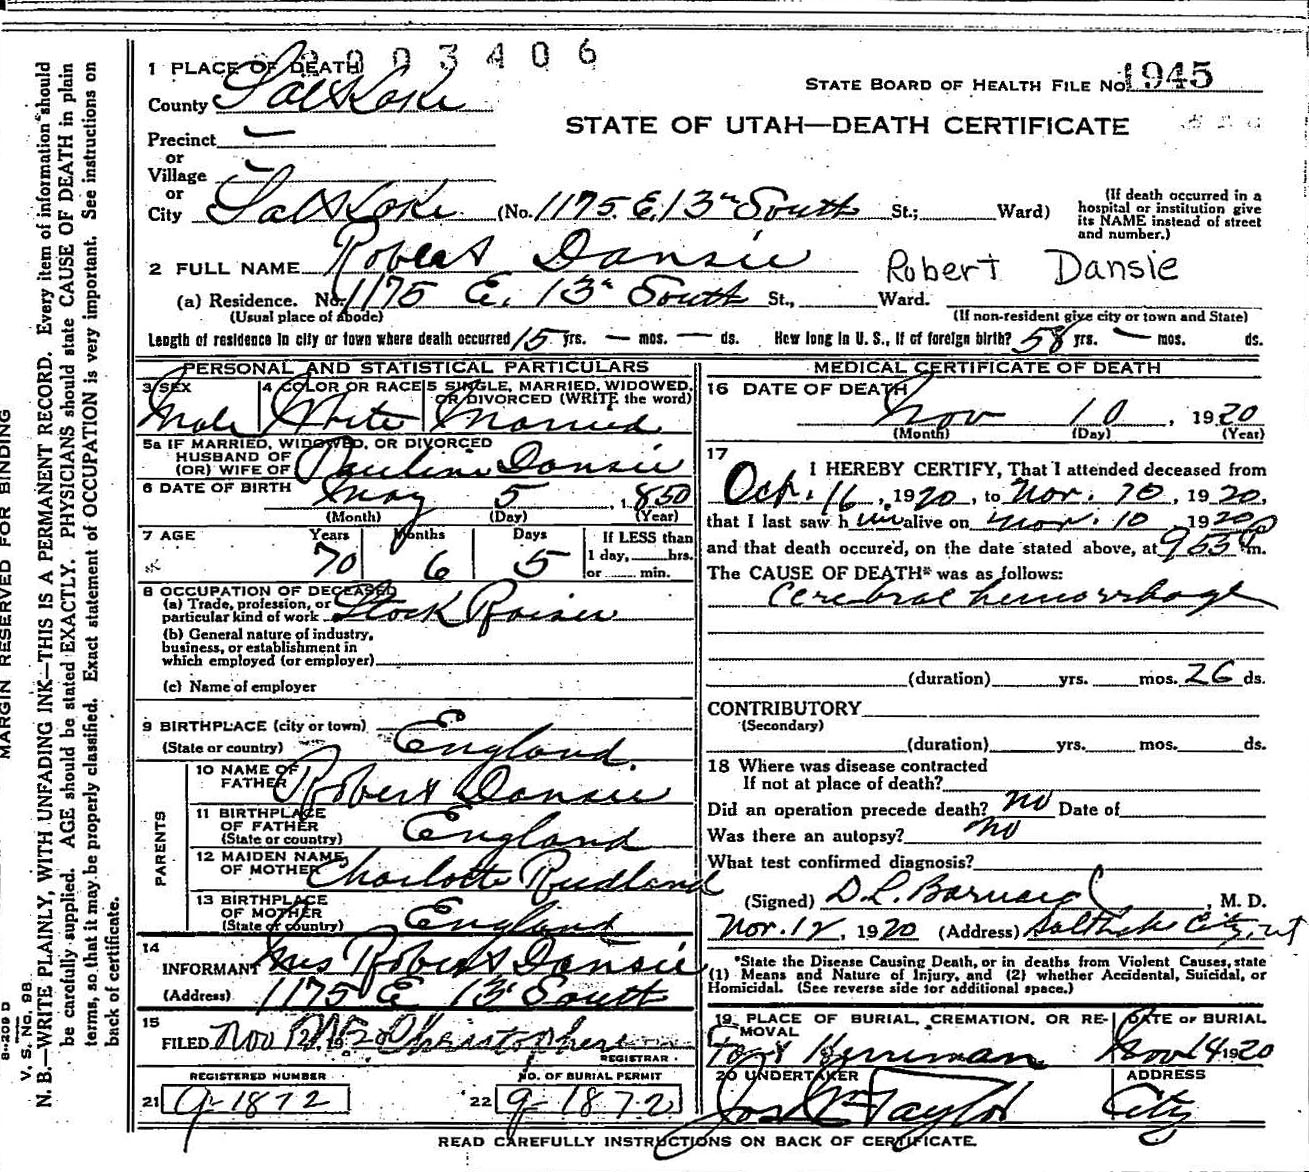 2003406
1 PLACE OF DEATH
STATE BOARD OF HEALTH FILE No. 1945
County Salt Lake
STATE OF UTAH—DEATH CERTIFICATE
Precinct —
or
Village —
or
City Salt Lake (No. 1175 E. 13th South St.; Ward)
(If death occurred in a hospital or institution give its NAME instead of street and number.)
2 FULL NAME Robert Dansie Robert Dansie
(a) Residence. No. 1175 E. 13th South St., Ward.
(Usual place of abode) (If non-resident give city or town and State)
Length of residence in city or town where death occurred 15 yrs. — mos. — ds. How long in U. S., if of foreign birth? 58 yrs. — mos. ds.
PERSONAL AND STATISTICAL PARTICULARS
3 SEX 4 COLOR OR RACE 5 SINGLE, MARRIED, WIDOWED, OR DIVORCED (WRITE the word)
Male White Married
5a IF MARRIED, WIDOWED, OR DIVORCED
HUSBAND OF
(OR) WIFE OF Pauline Dansie
6 DATE OF BIRTH May 5, 1850
(Month) (Day) (Year)
7 AGE Years Months Days If LESS than
70 6 5 1 day, hrs.
or min.
8 OCCUPATION OF DECEASED
(a) Trade, profession, or
particular kind of work Stock Raiser
(b) General nature of industry,
business, or establishment in
which employed (or employer)
(c) Name of employer
9 BIRTHPLACE (city or town)
(State or country) England.
PARENTS
10 NAME OF FATHER Robert Dansie
11 BIRTHPLACE OF FATHER
(State or country) England
12 MAIDEN NAME OF MOTHER Charlotte Rudland
13 BIRTHPLACE OF MOTHER
(State or country) England
14
INFORMANT Mrs Robert Dansie
(Address) 1175 E 13th South
15
FILED Nov 12 1920 Christophers
REGISTRAR
REGISTERED NUMBER NO. OF BURIAL PERMIT
21 9-1872 22 9-1872
MEDICAL CERTIFICATE OF DEATH
16 DATE OF DEATH
Nov 10, 1920
(Month) (Day) (Year)
17 I HEREBY CERTIFY, That I attended deceased from
Oct. 16, 1920, to Nov. 10, 1920,
that I last saw him alive on Nov. 10 1920
and that death occured, on the date stated above, at 953 P m.
The CAUSE OF DEATH* was as follows:
Cerebral hemorrhage
(duration) yrs. mos. 26 ds.
CONTRIBUTORY
(Secondary)
(duration) yrs. mos. ds.
18 Where was disease contracted
If not at place of death?
Did an operation precede death? no Date of
Was there an autopsy? no
What test confirmed diagnosis?
(Signed) D. L. Barnard, M. D.
Nov. 12, 1920 (Address) Salt Lake City, Ut
*State the Disease Causing Death, or in deaths from Violent Causes, state
(1) Means and Nature of Injury, and (2) whether Accidental, Suicidal, or
Homicidal. (See reverse side for additional space.)
19 PLACE OF BURIAL, CREMATION, OR RE- DATE OF BURIAL
MOVAL
Fort Herriman Nov 14 1920
20 UNDERTAKER ADDRESS
Jos Wm Taylor City
READ CAREFULLY INSTRUCTIONS ON BACK OF CERTIFICATE.
MARGIN RESERVED FOR BINDING
V. S. No. 98
N. B.—WRITE PLAINLY, WITH UNFADING INK—THIS IS A PERMANENT RECORD. Every item of information should
be carefully supplied. AGE should be stated EXACTLY. PHYSICIANS should state CAUSE OF DEATH in plain
terms, so that it may be properly classified. Exact statement of OCCUPATION is very important. See instructions on
back of certificate.